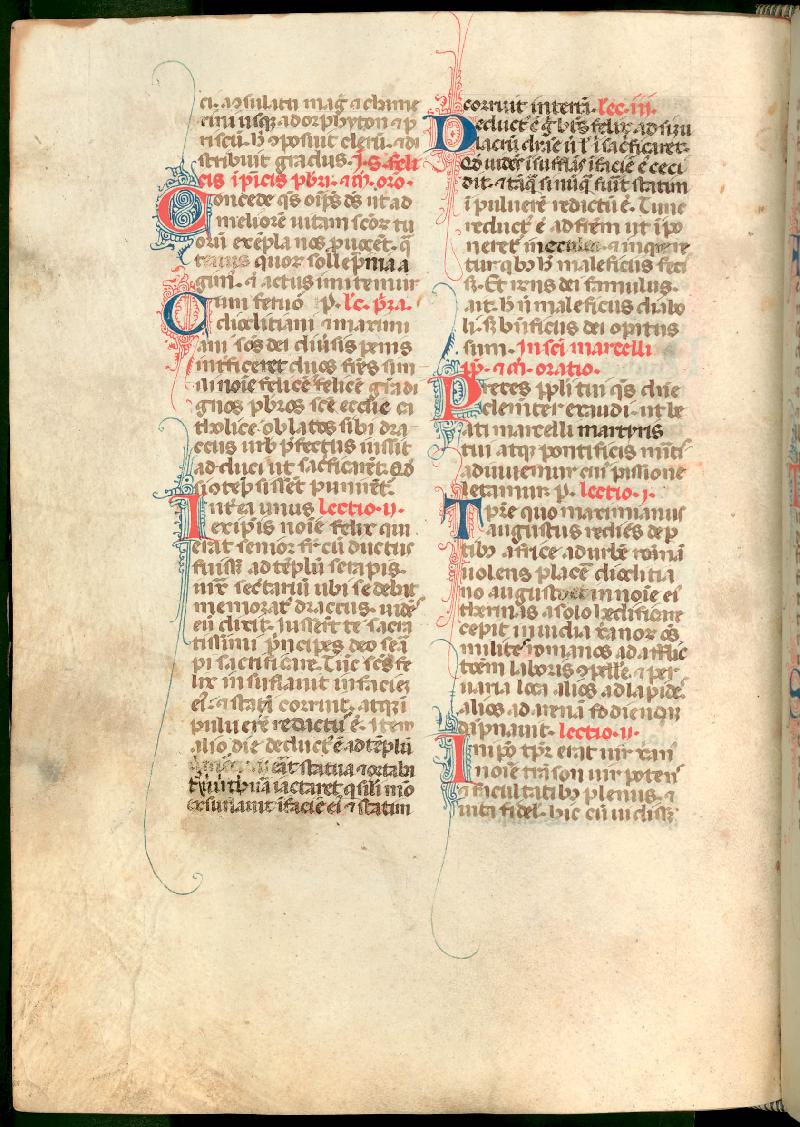 ci. ⁊ ꝯsulatu mag̃ ⁊ chime
rini usq; ad orphyton ⁊ p
riscū. h̃ ꝯposuit clerū. ⁊ di
stribuit gradus. I. S. feli
cis ĩ pĩcis pbri. ⁊ m̃. oro.
Concede q̃s oĩps ds ut ad
meliorē uitam scõr tu
orū exēpla nos puocēt. q̃
tenus quor sollēpnia a
gim̃. ⁊ actus imitemur
Cum fetuõ p̃. lc̃. p̃ia.
dioclitiani ⁊ maximi
ani sc̃os dei diũsis penis
intficeret duos fr̃es sim
ili noĩe felicē ⁊ felicē g̃ dı
gnos pbros sc̃e ecc̃lie ca
tholice. oblatos sibi dra
ccus urb p̃fectus iussit
adduci ut sac̃ficarēt. Qd
si ꝯtēpsissēt punirēt.
Int ea unus Lectio. ij.
ex ip̃is noĩe felix qui
erat senior fr̃ cū ductus
fuiss̃ ad tēplū serapis.
iuxͭ sec̃tariū ubi sedebat
memorat draccus. uidēs
eū dixit. Iusser̃t te sacra
tissimi p̃ncipes deo sera
pi sacrificare. Tũc sc̃s fe
lix insuflauit in faciez
ei. ⁊ statĩ corruit. atq; ĩ
puluerē redactū ē. Item
alio die deduct̃ ē ad tēplū
erat statua ⁊ ortabat
tribuũ iactaret q̃ sili mõ
exsuflauit ĩ faciē ei ⁊ statim
corruit in terrã. lec. iii.
Deduct̃ ē g̃ btũs felix ad simu
lacrū diãe ũ ĩ sac̃ficaret.
Qd uidẽs ĩsufflas ĩ faciē ē ceci
dit. ⁊ tãq̃ si nũq̃ fuiss̃ statim
ĩ puluerē redactū ē. Tunc
reduct̃ ē ad fr̃em ut ĩpo
neret̃ in eculeo. ⁊ inquire
tur qbꝫ h̃ maleficiis feci
ss̃. Et irridens dei famulus.
ait. h̃ ñ maleficiis diabo
li. s̃ bñficiis dei opatus
sum. In sc̃i marcelli
pp̃. ⁊ m̃. oratio.
Preces ppli tui q̃s dñe
clemẽter exaudi. ut be
ati marcelli martyris
tui atq; pontificis m̃itis
adiuuemur cui passione
letamur. p̃. lectio. i.
Tpr̃e quo maximianus
augustus rediẽs de p
tibꝫ africe ad urbē romã
uolens placẽ dioclitia
no augusto ut in noĩe ei
thermas a solo hedificare
cepit inuidia xp̃anor oẽs
milites romanos ad afflic
tõem laboris ꝯpelle. ⁊ per
uaria loca alios ad lapides
alios ad arenã fodiendū
dãpnauit. lectio. ii.
In ip̃o tpr̃e erat uir xp̃ian
noĩe trason uir potens
⁊ facultatibꝫ plenus. ⁊
uita fidel. hic cū uidiss̃